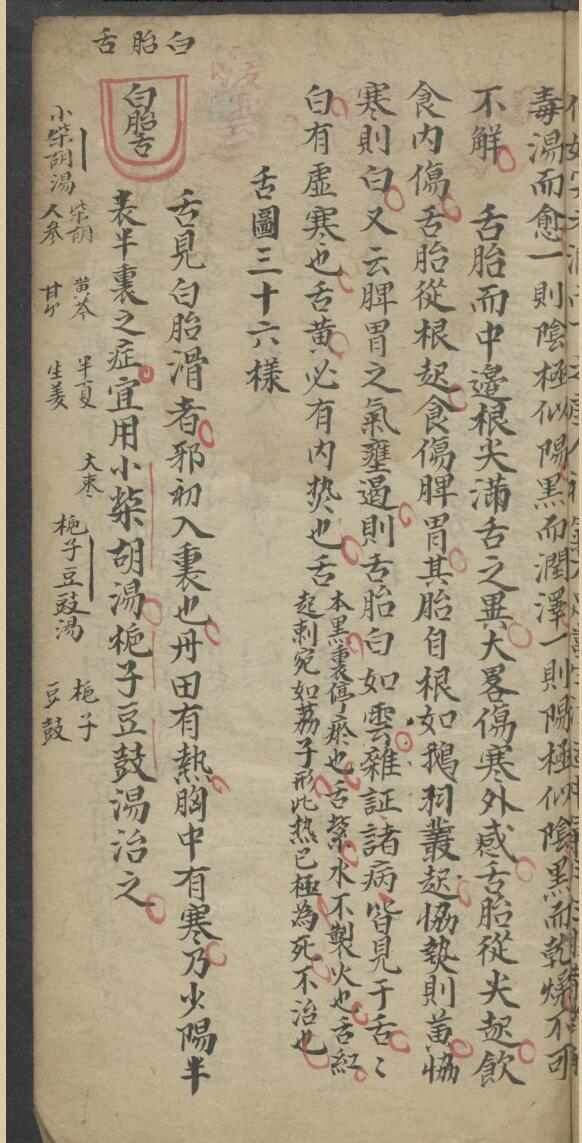 毒湯而愈一則陰極似陽黑而潤澤一則陽極似陰黑而乾燥不可
不解　舌胎而中邊根尖滿舌之異大畧傷寒外感舌胎從尖起飲
食内傷舌胎從根起食傷脾胃其胎自根如鵝羽叢起恊熱則黄恊
寒則白又云脾胃之氣壅遏則舌胎白如雲雜証諸病皆見于舌〻
白有虚寒也舌黄必有内熱也舌
本黑裏停瘀也舌紫水不製火也舌紅
起刺宛如荔子形此热已極為死不治也
舌圖三十六様
舌見白胎滑者邪初入裏也丹田有熱胸中有寒乃少陽半
表半裏之症宜用小柴胡湯梔子豆鼓湯治之
白胎舌
白胎舌
小柴胡湯
柴胡　黄芩　半夏　大枣
人參　甘艸　生姜
梔子豆豉湯
梔子
豆鼓